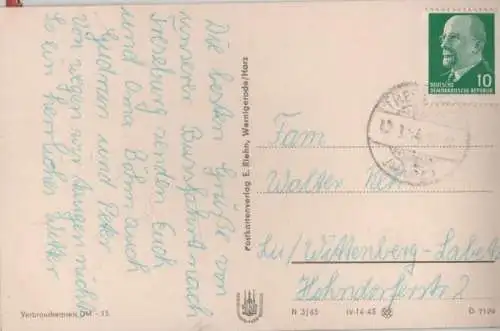 Die besten Grüße von
unserer Busfahrt nach
senden Euch
und Oma Böhm auch
Gudrun und Peter
von wegen von Jungen nicht
so ein herrliches Wetter
Verbraucherpreis DM -.15
Postkartenverlag E. Riehn, Wernigerode/Harz
10
DEUTSCHE
DEMOKRATISCHE REPUBLIK
Fam
Walter
Lu/Wittenberg-Labetz
Hohndorferstr 2
N 3/63 IV-14-45 D 7199